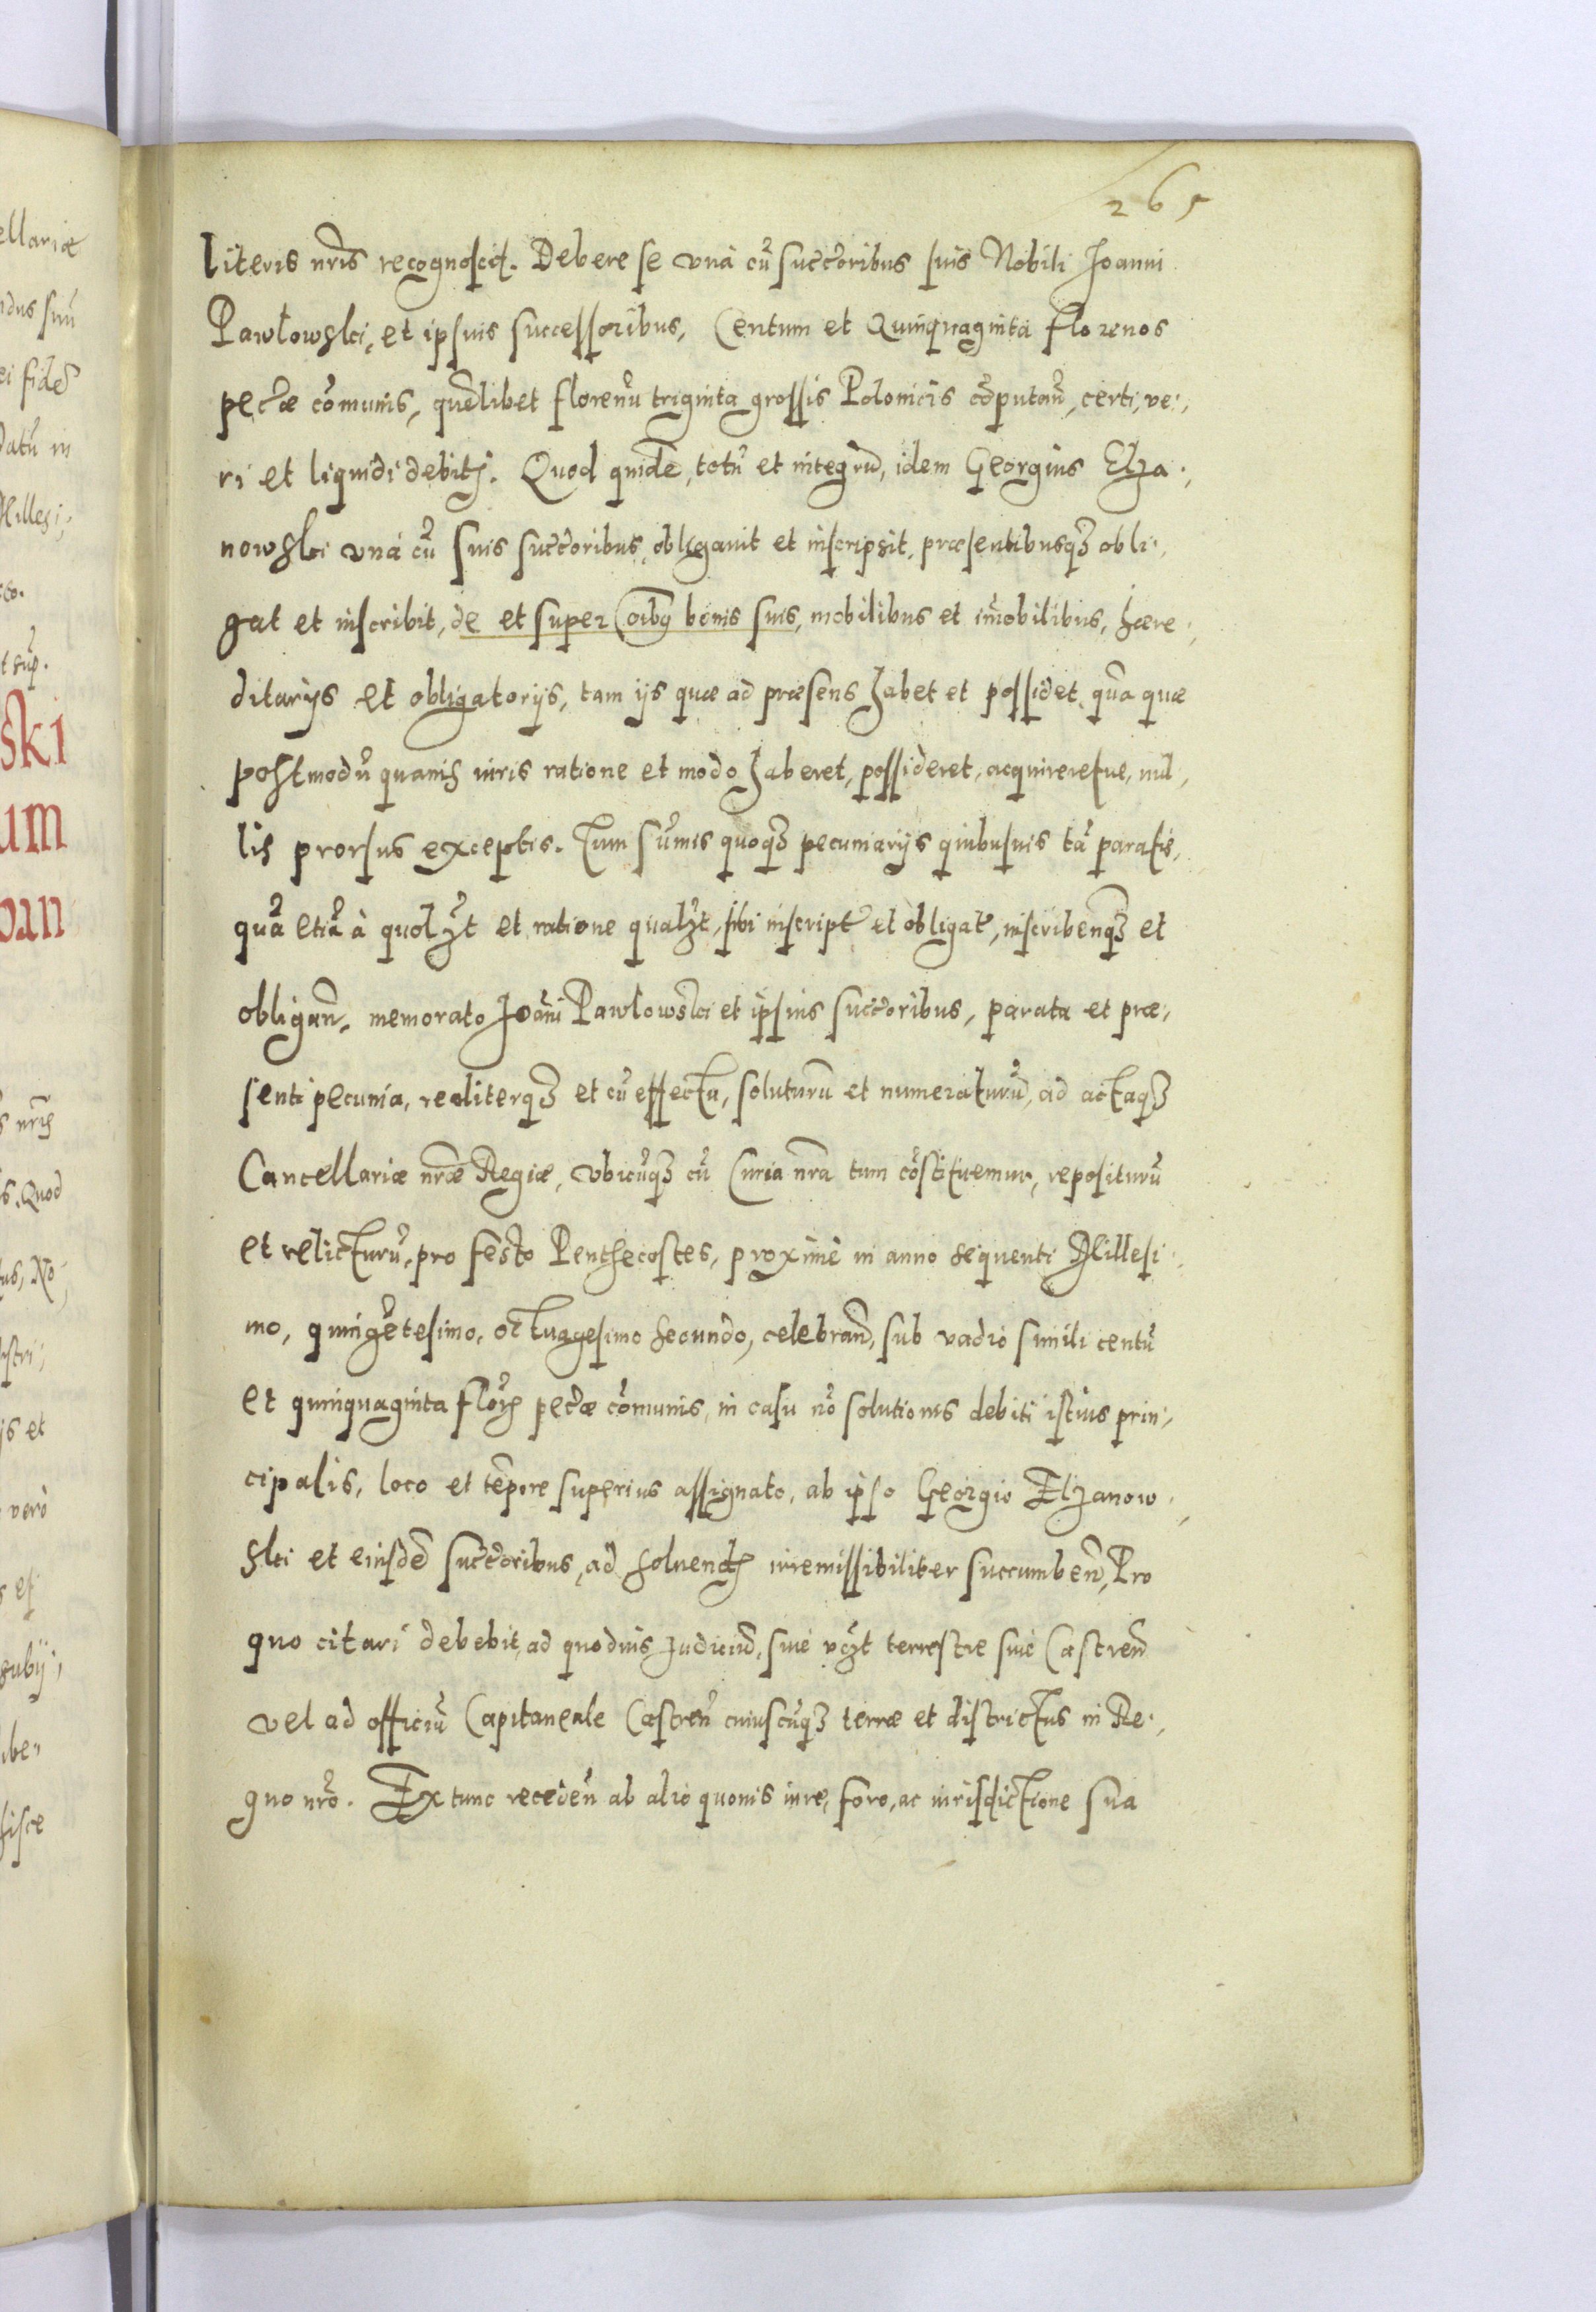 265
literis nr̃is recognoscit. Debere se vnà cũ succ̃oribus suis Nobili Joanni
Pawłowski, et ipsius successoribus, Centum et Quinquaginta florenos
pec̃iæ cõmunis, quẽlibet florenũ triginta grossis Polonicis cõputan̄, certi, ve,
ri et liquidi debiti. Quod quidẽ, totũ et integrũ, idem Georgius Elza,
nowski vnà cũ suis succ̃oribus, obligauit et inscripsit, præsentibusqʒ obli,
gat et inscribit, de et super oĩbꝫ bonis suis, mobilibus et im̃obilibus, hære,
ditarijs et obligatorijs, tam ijs quæ ad præsens habet et possidet, quã quæ
postmodũ quauis iuris ratione et modo haberet, possideret, acquireretue, nul,
lis prorsus exceptis. Tum sũmis quoqʒ pecuniarijs quibusuis tã paratis,
quã etiã à quolʒt et ratione qualʒt, sibi inscript̃ et obligat̃, inscribenqʒ et
obligan̄. memorato Joãni Pawłowski et ipsius succ̃oribus, parata et præ,
senti pecunia, realiterqʒ et cũ effectu, soluturũ et numeraturũ, ad actaqʒ
Cancellariæ nr̃æ Regiæ, vbicũqʒ cũ Curia nr̃a tum cõstituemur, repositurũ
et relicturũ, pro festo Penthecostes, proximè in anno sequenti Millesi,
mo, quingẽtesimo, octuagesimo secundo, celebran̄, sub vadio simili centũ
et quinquaginta flor̃ pec̃iæ cõmunis, in casu nõ solutionis debiti istius prin,
cipalis, loco et tẽpore superius assignato, ab ipso Georgio Elzanow,
ski et eiusdẽ succ̃oribus, ad soluend irremissibiliter succumben̄, Pro
quo citari debebit, ad quoduis Judiciũ, siue vʒt terrestre siue Castren̄
vel ad officiũ Capitaneale Castren̄ cuiuscũqʒ terræ et districtus in Re,
gno nr̃o. Ex tunc receden̄ ab alio quouis iure, foro, ac iurisdictione sua